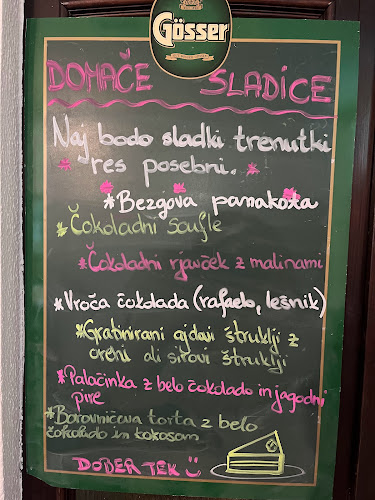 Gösser
DOMAČE SLADICE
Naj bodo sladki trenutki
res posebni.
*Bezgova pannakota
*Čokoladni soufle
*Čokoladni rjavček z malinami
*Vroča čokolada (rafaelo, lešnik)
*Gratinirani ajdovi štruklji z
orehi ali sirovi štruklji
*Palačinka z belo čokolado in jagodni
pire
*Borovničeva torta z belo
čokolado in kokosom
DOBER TEK